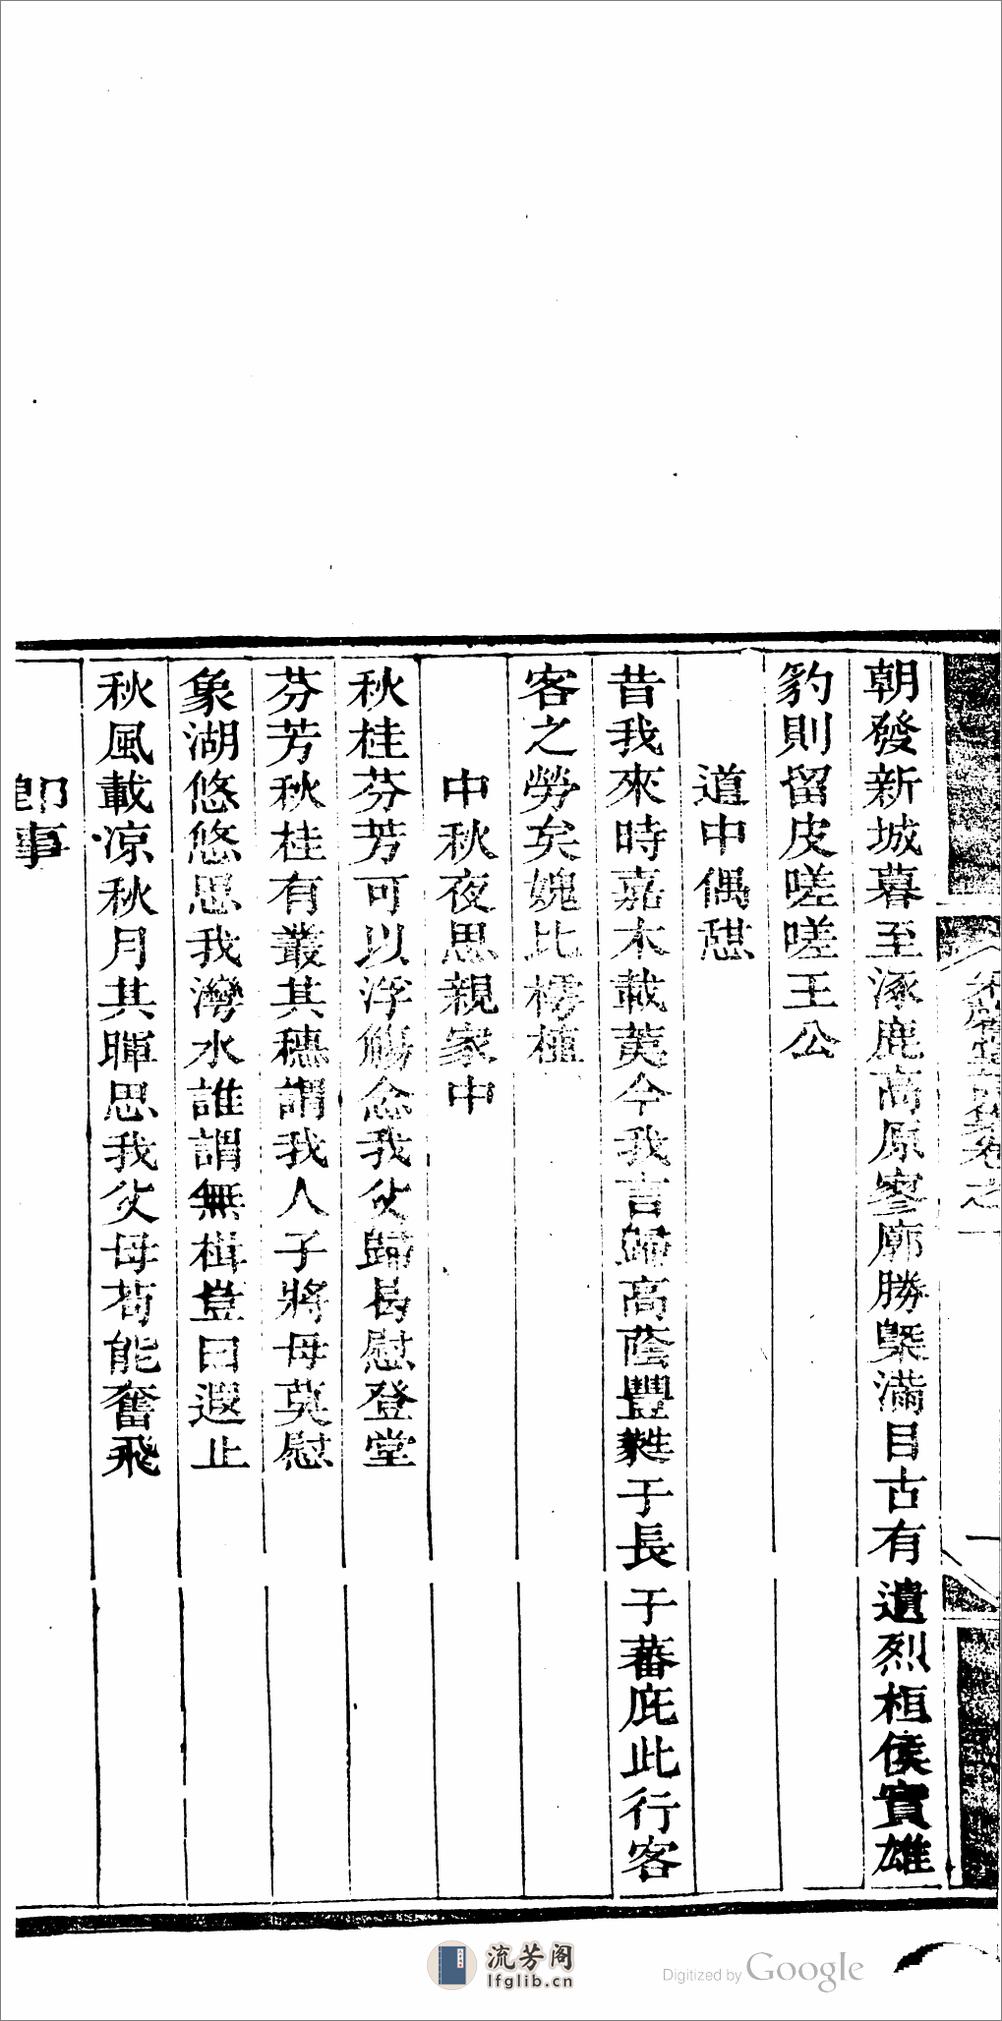 朝發新城暮至涿鹿高原寥廓勝槩滿目古有遺烈桓侯實雄
豹則留皮嗟嗟王公
道中偶憇
昔我來時嘉木載荑今我言歸高蔭豐甤于長于蕃庇此行客
客之勞矣媿比樗植
中秋夜思親家中
秋桂芬芳可以浮觴念我父歸曷慰登堂
芬芳秋桂有叢其穗謂我人子將母莫慰
象湖悠悠思我灣水誰謂無楫豈曰遐止
秋風載凉秋月其暉思我父母苟能奮飛
卽事
流芳阁
lfglib.cn
Digitized by Google